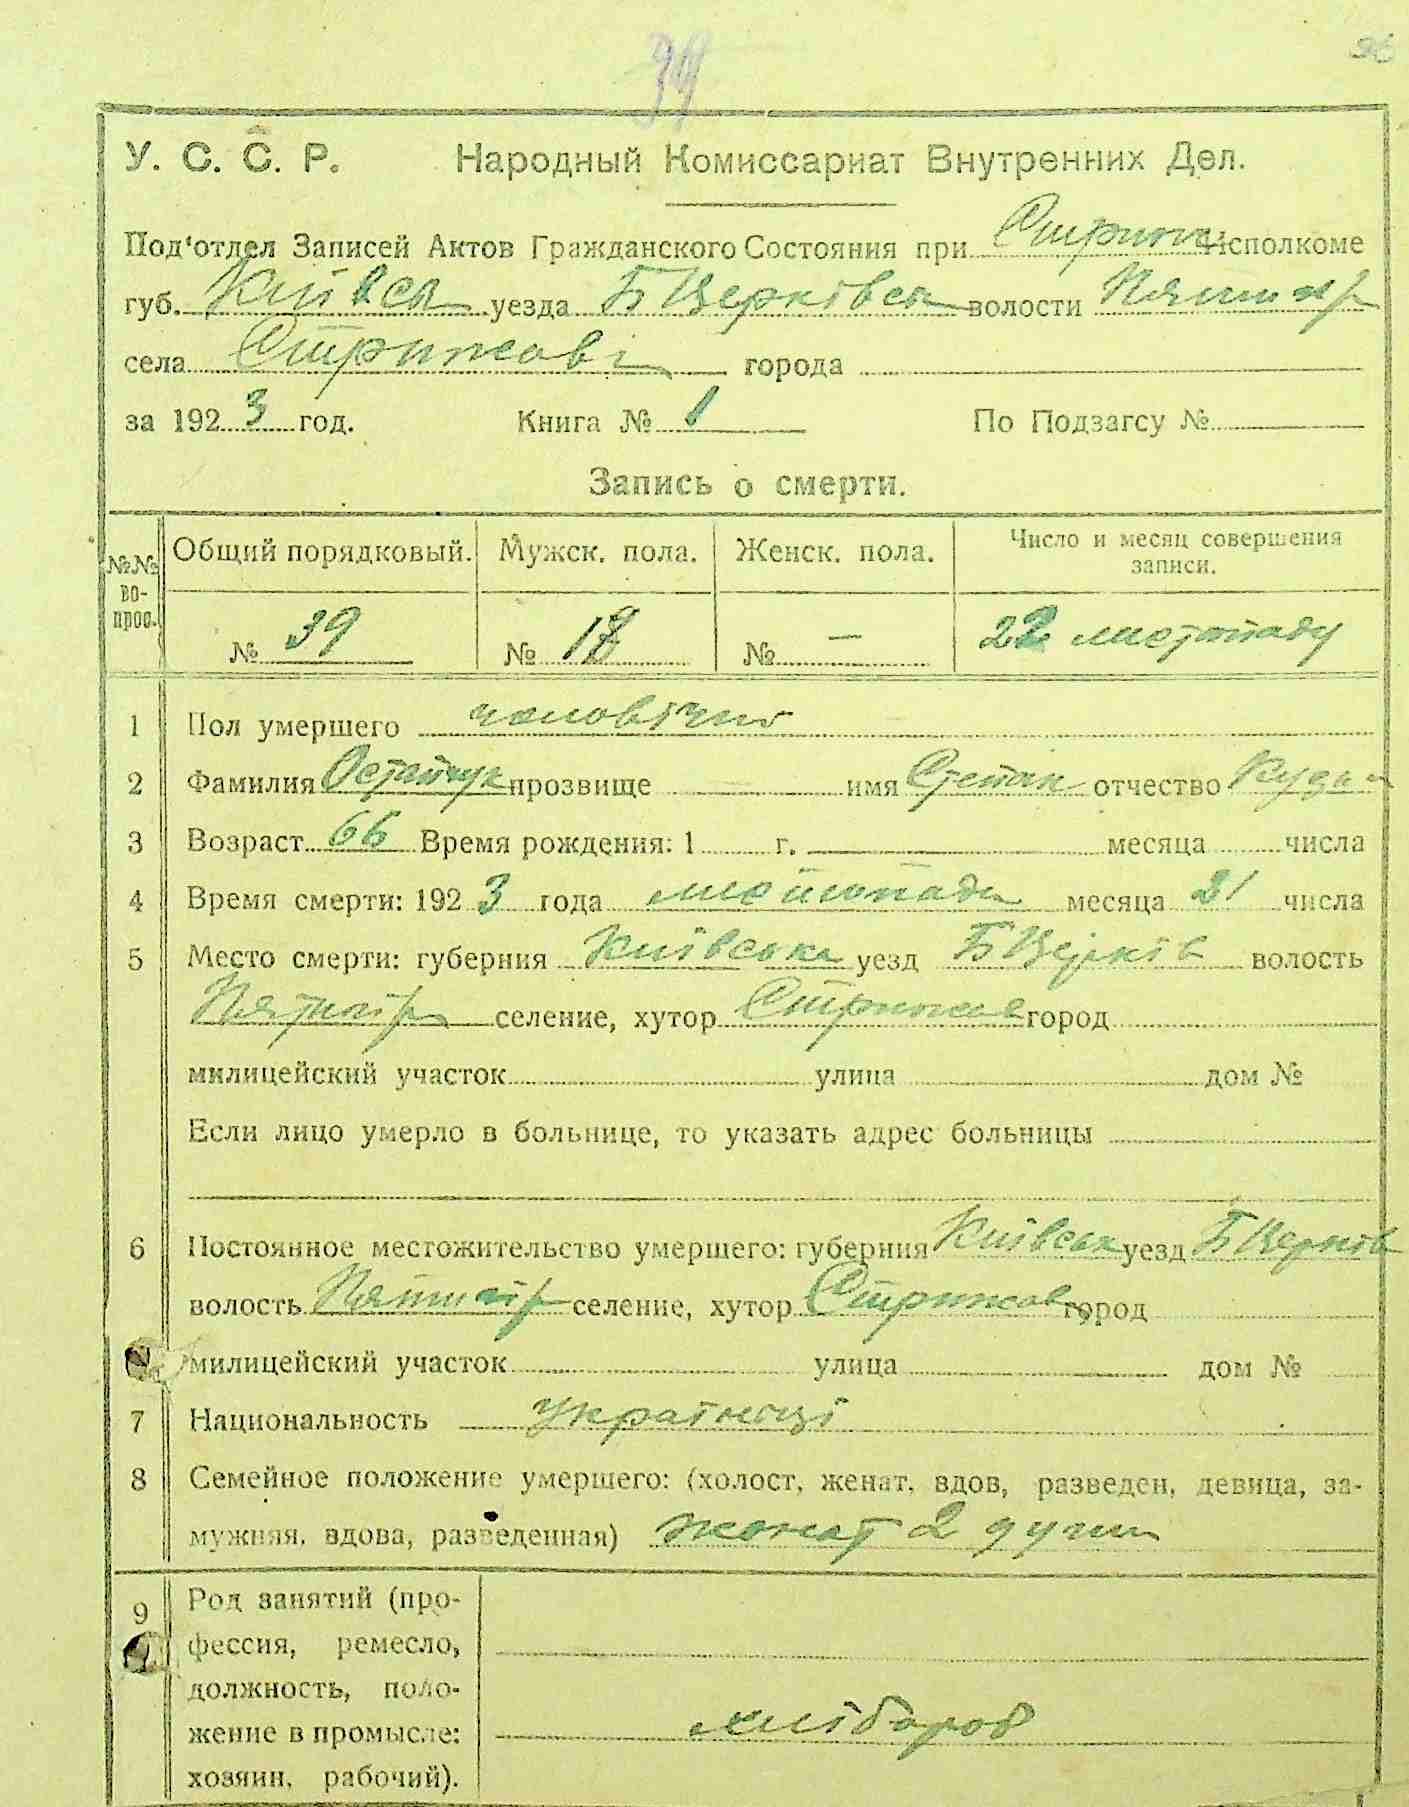 39
У. С. С. Р. Народный Комиссариат Внутренних Дел.
Под‘отдел Записей Актов Гражданского Состояния при Исполкоме
губ. Київськ уезда Б Церківськ волости
села Стрижавки города
за 192 3 год. Книга № 1 По Подзагсу №
Запись о смерти.
№№ вопрос. Общий порядковый. Мужск. пола. Женск. пола. Число и месяц совершения записи.
№ 39 № № — 22 листопаду
1 Пол умершего чоловічий
2 Фамилия Остапчук прозвище имя Степан отчество
3 Возраст 66 Время рождения: 1 г. месяца числа
4 Время смерти: 192 3 года листопада месяца 21 числа
5 Место смерти: губерния Київська уезд Б Церків волость
селение, хутор город
милицейский участок улица дом №
Если лицо умерло в больнице, то указать адрес больницы
6 Постоянное местожительство умершего: губерния Київськ уезд Б Церков
волость селение, хутор город
милицейский участок улица дом №
7 Национальность українці
8 Семейное положение умершего: (холост, женат, вдов, разведен, девица, за-
мужняя, вдова, разведенная) жонат 2
9 Род занятий (про-
фессия, ремесло,
должность, поло-
жение в промысле:
хозяин, рабочий).
хлібороб